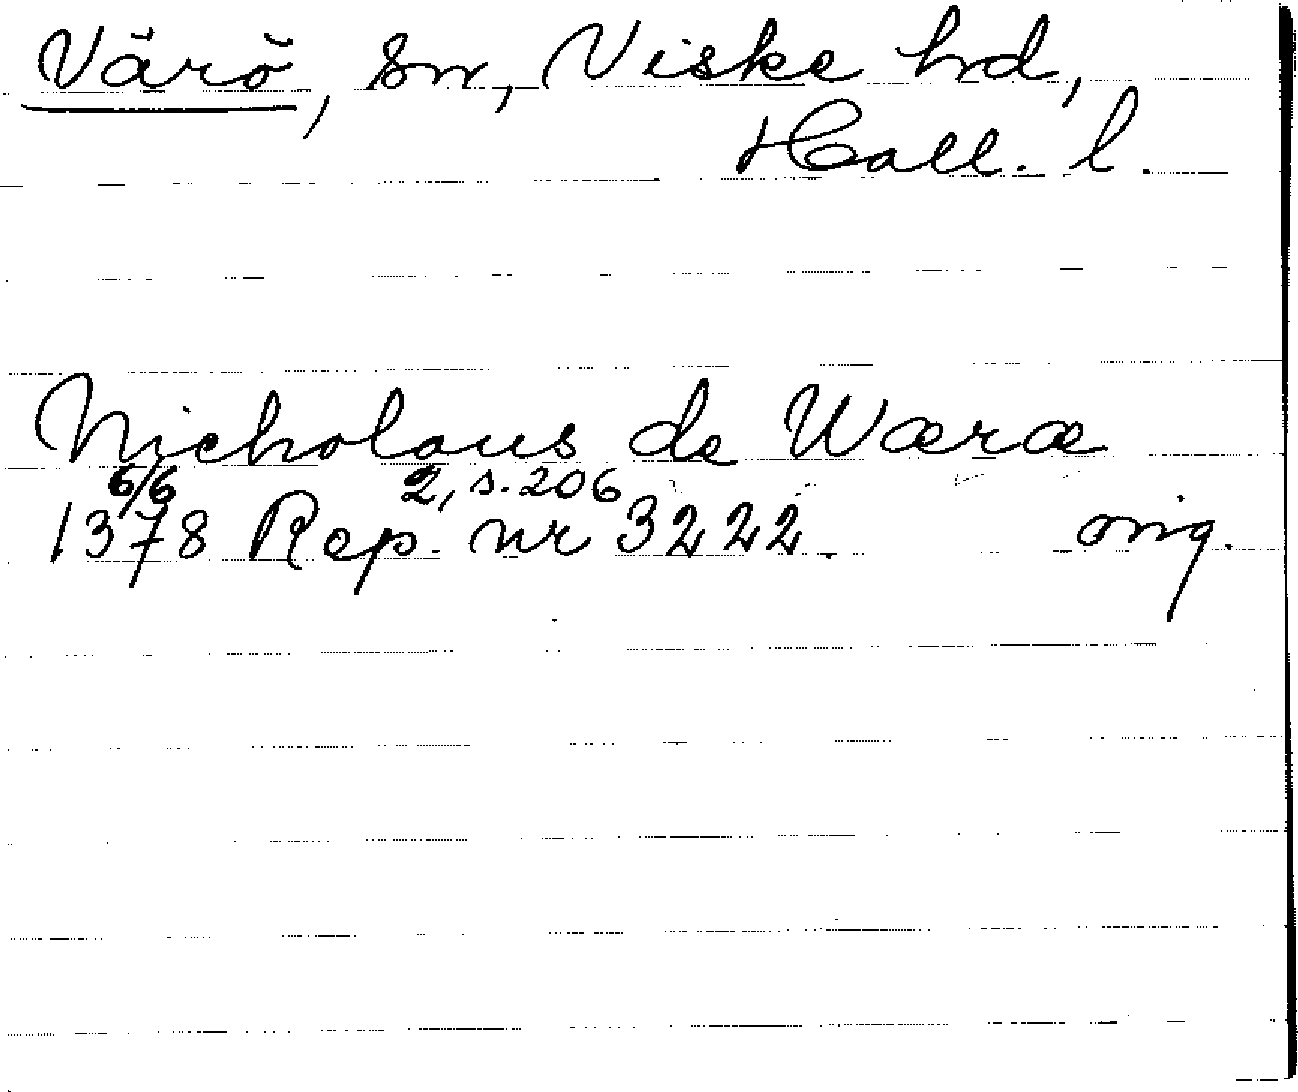 Värö, sn, Viske hd,
Hall. l.
Nicholaus de Wæræ
6/6 2, s. 206
1378 Rep. nr 3222. orig.